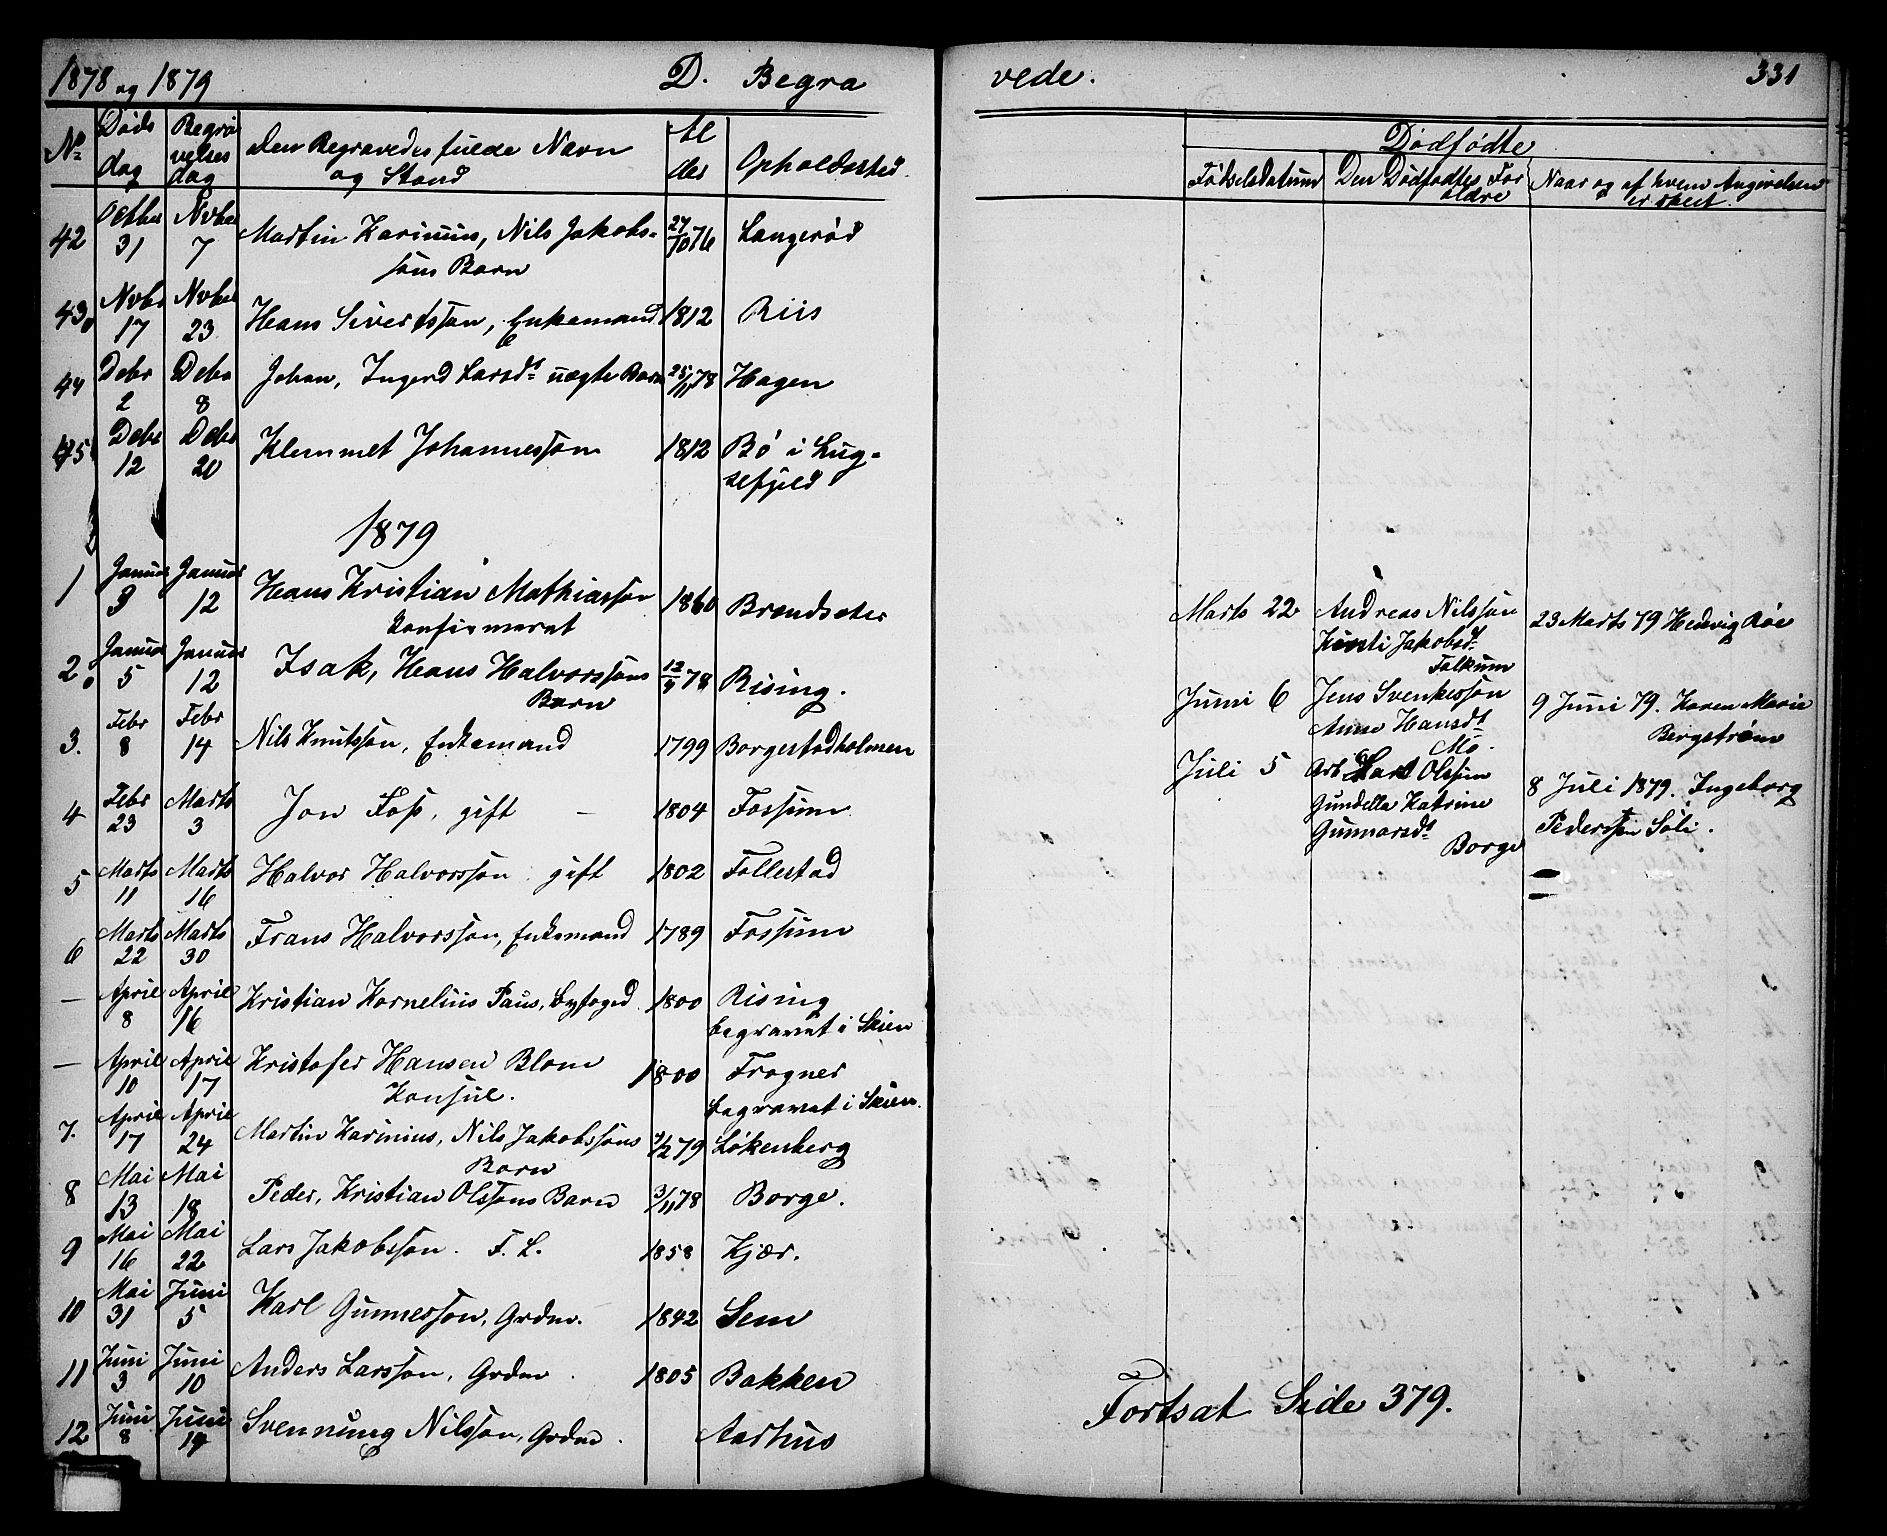 1878 og 1879 D. Begravede. 331
No Døds dag Begravelses dag Den Begravedes fulde Navn og Stand Alder Opholdssted
42 Octbr 31 Novbr 7 Martin Karinius, Nils Jakobs-
sons Barn 27/10 76 Langerød
43. Novbr 17 Novbr 23 Hans Sivertsson, Enkemand 1812 Riis
44 Debr 2 Debr 8 Johan, Ingerd Larsdt uægte Barn 25/11 78 Hagen
45 Debr 12 Debr 20 Klemmet Johannesson 1812 Bø i Lug-
sefjeld
1879
1 Januar 3 Januar 12 Hans Kristian Mathiasson 1860 Brændsæter
Konfirmeret
2. Januar 5 Januar 12 Isak, Hans Halvorssons 12/9 78 Rising.
Barn
3. Febr 8 Febr 14 Nils Knutsson, Enkemand 1799 Borgestadholmen
4 Febr 23 Marts 3 Jon Foss, gift — 1804 Fossum
5 Marts 11 Marts 16 Halvor Halvorsson gift 1802 Follestad
6 Marts 22 Marts 30 Frans Halvorsson, Enkemand 1789 Fossum
— April 8 April 16 Kristian Kornelius Paus, Byfoged 1800 Rising
begravet i Skien
— April 10 April 17 Kristofer Hansen Blom 1800 Frogner
Konsul. begravet i Skien.
7. April 17 April 24 Martin Karinius, Nils Jakobssons /2 79 Løkenberg
Barn
8 Mai 13 Mai 18 Peder, Kristian Olssons Barn 3/11 78 Borge.
9 Mai 16 Mai 22 Lars Jakobsson. F. L. 1858 Kjær.
10 Mai 31 Juni 5 Karl Gunnersson, Grdm. 1842 Sem
11 Juni 3 Juni 10 Anders Larsson, Grdm 1805 Bakken
12 Juni 8 Juni 14 Svennung Nilsson, Grdm. Aarhus
Dødfødte
Fødselsdatum Den Dødfødtes Forældre Naar og af hvem Angivelsen
er skeet.
Marts 22 Andreas Nilsson 23 Marts 79 Hedvig Röe
Kirsti Jakobsd.
Falkum
Juni 6 Jens Svenkesson 9 Juni 79. Karen Marie
Anne Hansdt Bergstrøm
Mo.
Juli 5 Arb. Lars Olsson 8 Juli 1879. Ingeborg
Gundella Katrine Pedersson Soli.
Gunnarsdt
Borge
Fortsat Side 379.